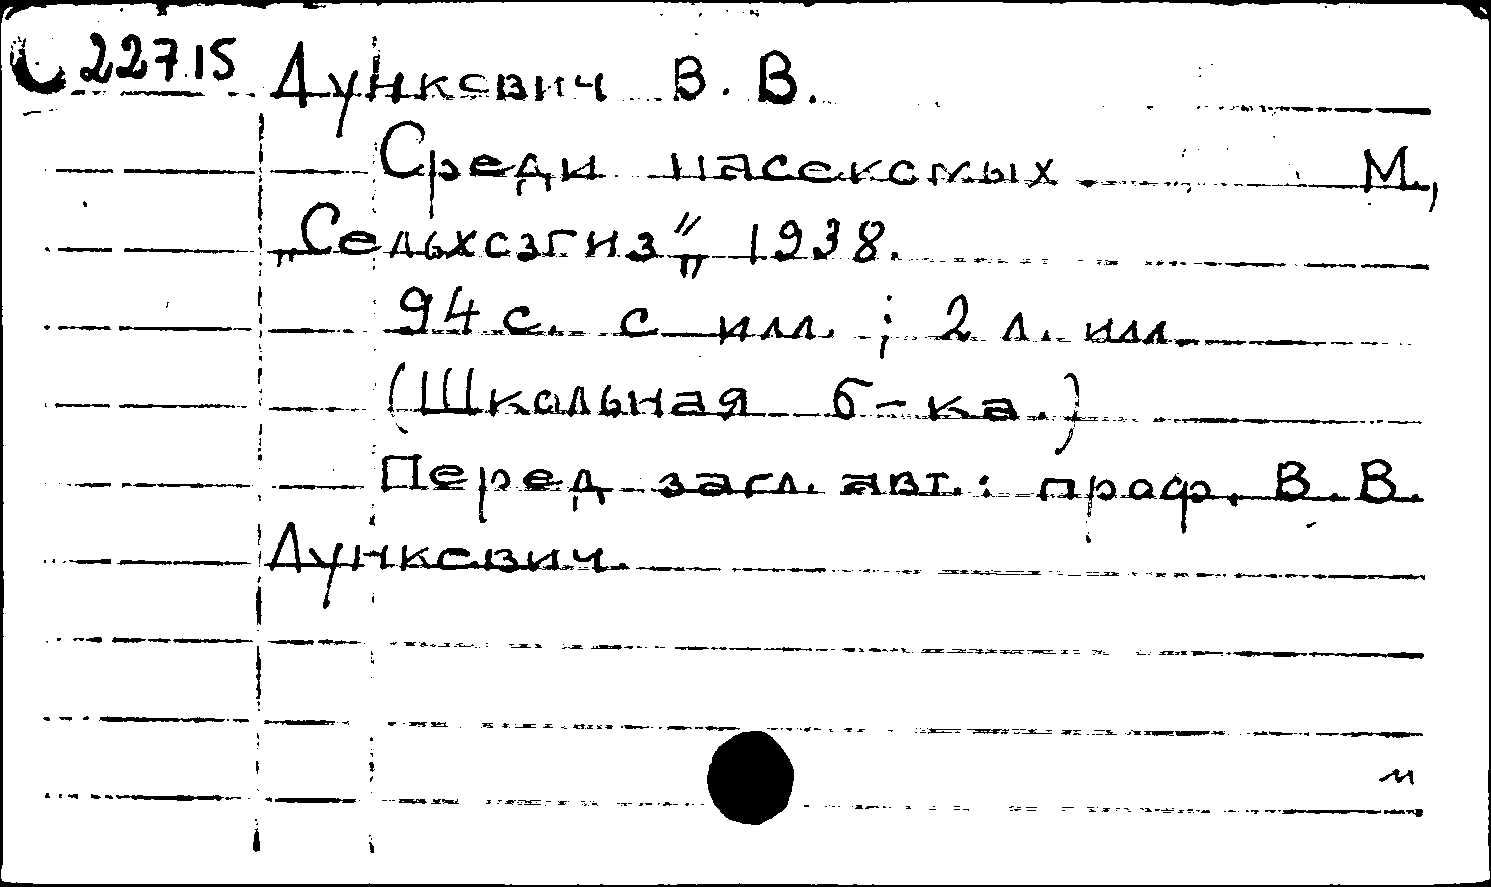 22715 Лункевич В. В.
Среди насекомых М.,
„Сельхозгиз“, 1938.
94 с. с илл. ; 2 л. илл.
(Школьная б-ка.)
Перед загл. авт.: проф. В. В.
Лункевич.
м